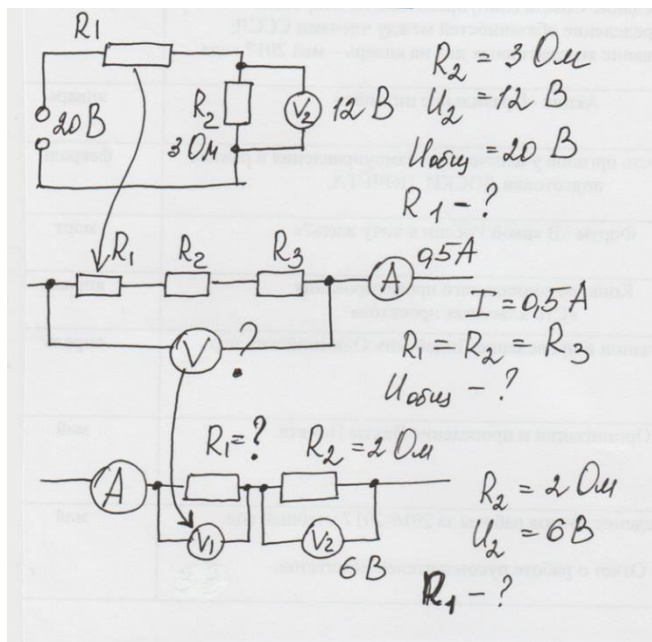 R1
20 В
R2
3 Ом
V2
12 В
R2 = 3 Ом
U2 = 12 В
Uобщ = 20 В
R1 - ?
R1
R2
R3
A
0,5А
V
?
I = 0,5А
R1 = R2 = R3
Uобщ - ?
R1 = ?
R2 = 2 Ом
A
V1
V2
6 В
R2 = 2 Ом
U2 = 6 В
R1 - ?